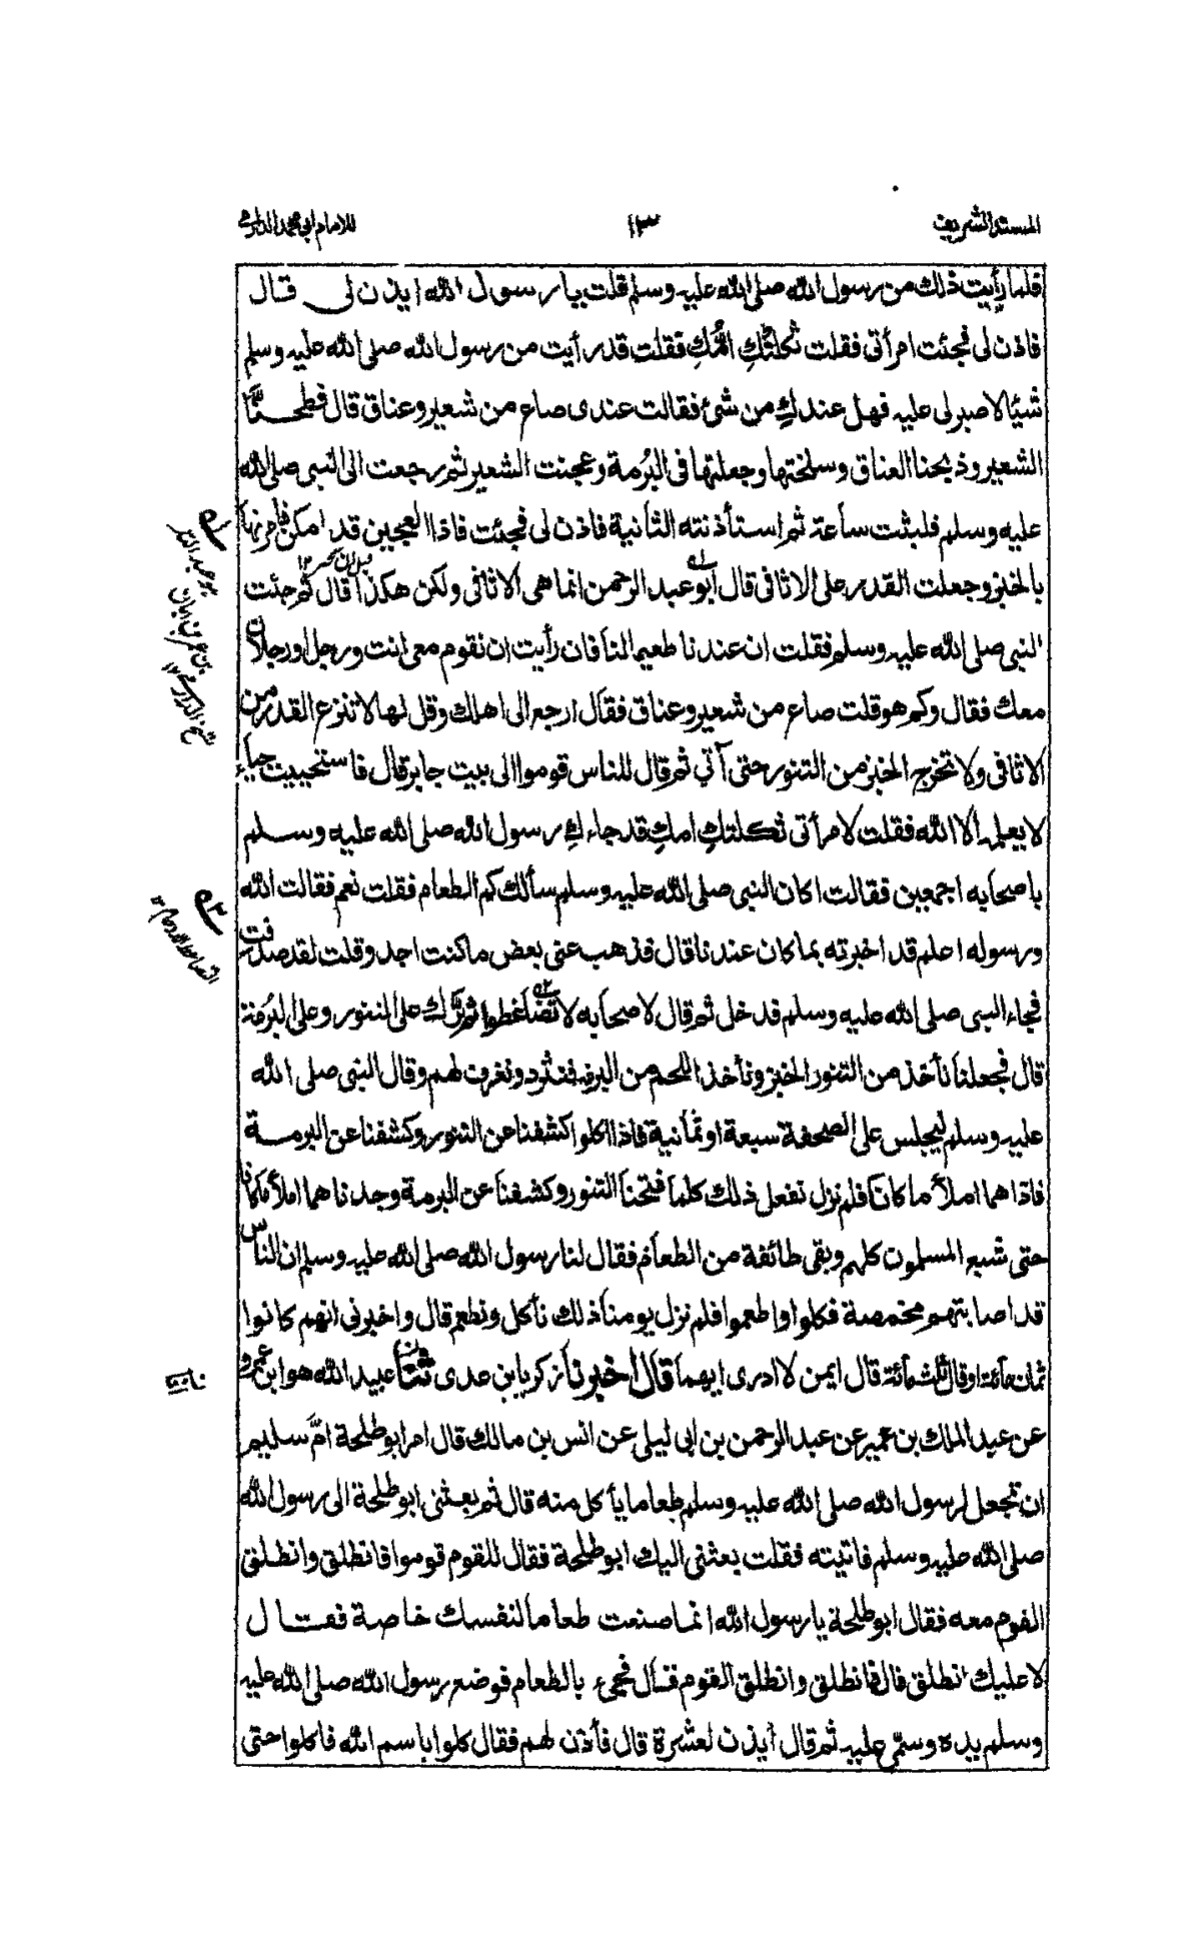 المسند الشريف
١٣
للامام ابي محمد الدارمي
فلما رأيت ذلك من رسول الله صلى الله عليه وسلم قلت يا رسول الله ايذن لى قال
فاذن لى فجئت امرأتى فقلت ثكلتكِ امُّكِ فقلت قد رأيت من رسول الله صلى الله عليه وسلم
شيئا لا صبر لى عليه فهل عندكِ من شئ فقالت عندى صاع من شعير وعناق قال فطحنَّا
الشعير وذبحنا العناق وسلختها وجعلتها فى البُرمة وعجنت الشعير ثم رجعت الى النبى صلى الله
عليه وسلم فلبثت ساعة ثم استأذنته الثانية فاذن لى فجئت فاذا العجين قد امكن فامرتها
بالخبز وجعلت القدر على الاثافى قال ابو عبد الرحمن انما هى الاثافى ولكن هكذا قال ثم جئت
النبى صلى الله عليه وسلم فقلت ان عندنا طعيما لنا فان رأيت ان تقوم معى انت ورجل او رجلان
معك فقال وكم هو قلت صاع من شعير وعناق فقال ارجع الى اهلك وقل لها لا تنزع القدر من
الاثافى ولا تخرج الخبز من التنور حتى آتي ثم قال للناس قوموا الى بيت جابر قال فاستحييت حياء
لا يعلمه الا الله فقلت لامرأتى ثكلتكِ امكِ قد جاءكِ رسول الله صلى الله عليه وسلم
باصحابه اجمعين فقالت اكان النبى صلى الله عليه وسلم سألك كم الطعام فقلت نعم فقالت الله
ورسوله اعلم قد اخبرته بما كان عندنا قال فذهب عنى بعض ما كنت اجد وقلت لقد صدقت
فجاء النبى صلى الله عليه وسلم فدخل ثم قال لاصحابه لا تضاغطوا ثم برَّك على التنور وعلى البُرمة
قال فجعلنا نأخذ من التنور الخبز ونأخذ اللحم من البرمة فنثرد ونغرف لهم وقال النبى صلى الله
عليه وسلم ليجلس على الصحفة سبعة او ثمانية فاذا اكلوا كشفنا عن التنور وكشفنا عن البرمة
فاذا هما املأ ما كانا فلم نزل نفعل ذلك كلما فتحنا التنور وكشفنا عن البرمة وجدناهما املأ ما كانا
حتى شبع المسلمون كلهم وبقى طائفة من الطعام فقال لنا رسول الله صلى الله عليه وسلم ان الناس
قد اصابتهم مخمصة فكلوا واطعموا فلم نزل يومنا ذلك نأكل ونطعم قال واخبرنى انهم كانوا
ثمان مائة او قال ثلثمائة قال ايمن لا ادرى ايهما قال اخبرنا زكريا بن عدى ثنا عبيد الله هو ابن عمرو
عن عبد الملك بن عمير عن عبد الرحمن بن ابى ليلى عن انس بن مالك قال امر ابو طلحة امَّ سليم
ان تجعل لرسول الله صلى الله عليه وسلم طعاما يأكل منه قال ثم بعثنى ابو طلحة الى رسول الله
صلى الله عليه وسلم فاتيته فقلت بعثنى اليك ابو طلحة فقال للقوم قوموا فانطلق وانطلق
القوم معه فقال ابو طلحة يا رسول الله انما صنعت طعاما لنفسك خاصة فقال
لا عليك انطلق قال فانطلق وانطلق القوم قال فجىء بالطعام فوضع رسول الله صلى الله عليه
وسلم يده وسمّى عليه ثم قال أيذن لعشرة قال فأذن لهم فقال كلوا باسم الله فاكلوا حتى